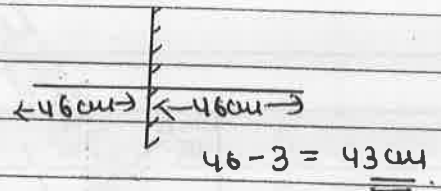 ←46cm→ ←46cm→
46-3 = 43cm